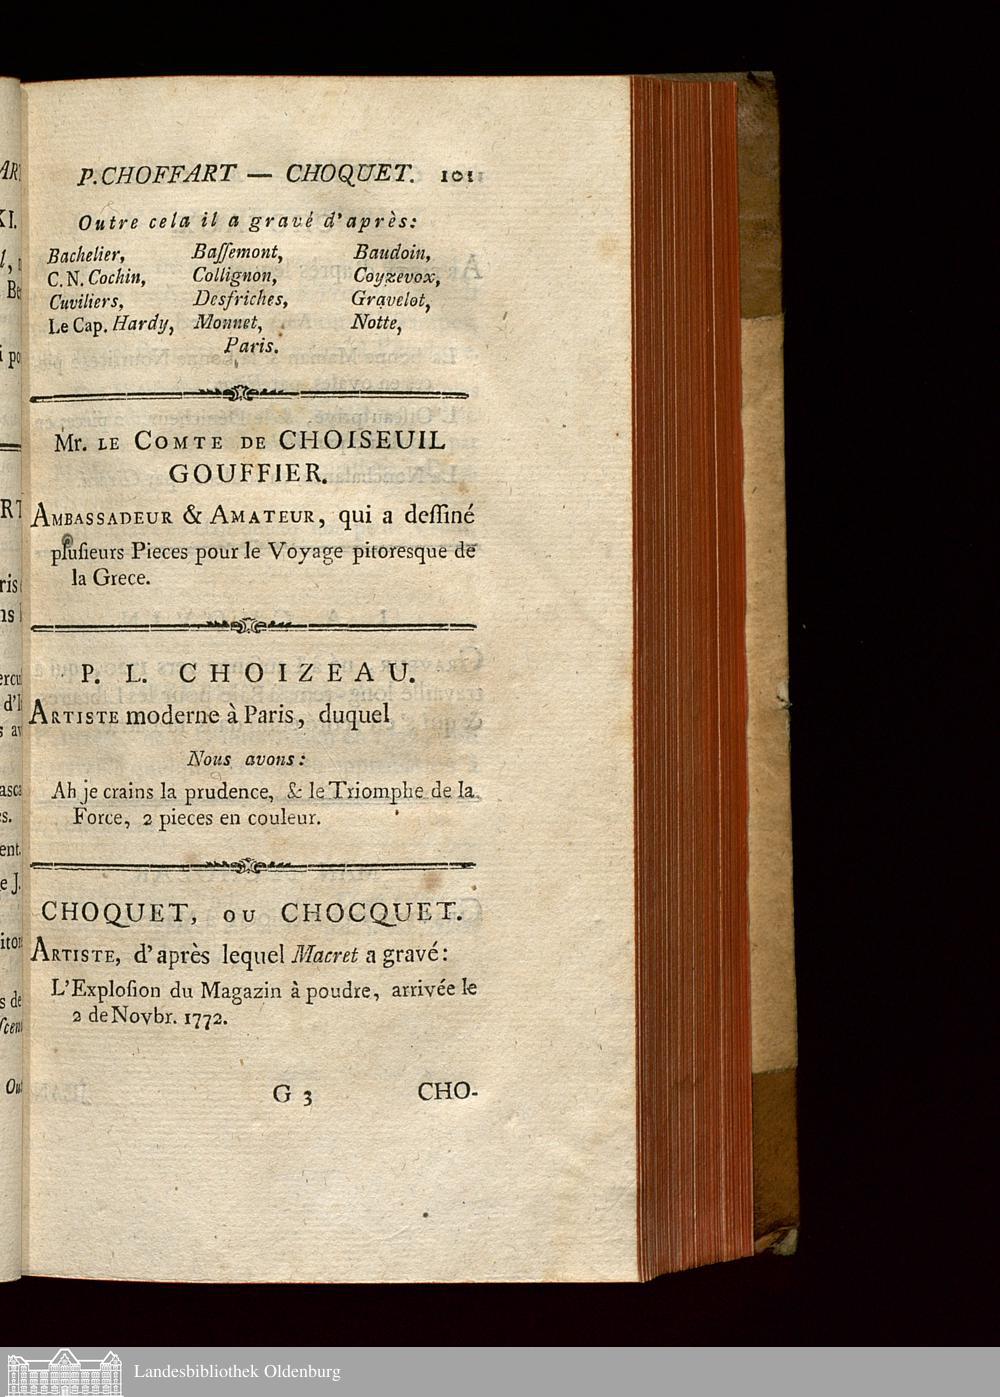 P. CHOFFART — CHOQUET. 101
Outre cela il a gravé d'après:
Bachelier, Baſſemont, Baudoin,
C. N. Cochin, Collignon, Coyzevox,
Cuviliers, Desfriches, Gravelot,
Le Cap. Hardy, Monnet, Notte,
Paris.
Mr. LE COMTE DE CHOISEUIL
GOUFFIER.
AMBASSADEUR & AMATEUR, qui a deſſiné
pluſieurs Pieces pour le Voyage pitoresque de
la Grece.
P. L. CHOIZEAU.
ARTISTE moderne à Paris, duquel
Nous avons:
Ah je crains la prudence, & le Triomphe de la
Force, 2 pieces en couleur.
CHOQUET, OU CHOCQUET.
ARTISTE, d'après lequel Macret a gravé:
L'Exploſion du Magazin à poudre, arrivée le
2 de Novbr. 1772.
G 3 CHO-
Landesbibliothek Oldenburg